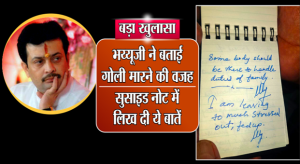 बड़ा खुलासा
भय्यूजी ने बताई
गोली मारने की वजह
सुसाइड नोट में
लिख दी ये बातें
Some body should
be there to handle
duties of family.
I am leaving
too much stressed
out, fedup.